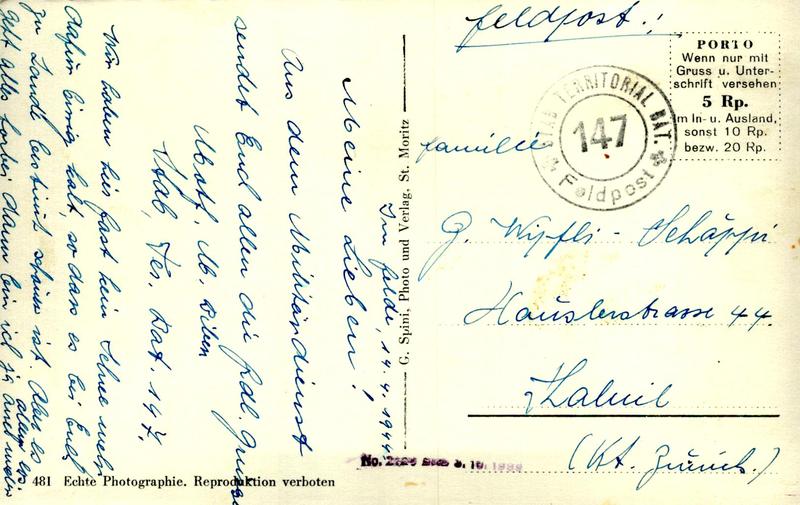 Im Felde, 14.4.1944
Meine Lieben!
Aus dem Militärdienst
sendet Euch allen die frdl. Grüsse
Motf. M.
Stab, Ter. Bat. 147.
Wir haben hier fast kein Schnee mehr
dafür kalt, so dass es bei Euch
zu Lande bestimmt schöner ist. Aber es
geht alles vorbei, dann bin ich ja auch wieder
481 Echte Photographie. Reproduktion verboten
G. Spini, Photo und Verlag, St. Moritz
Feldpost.!
PORTO
Wenn nur mit
Gruss u. Unter-
schrift versehen
5 Rp.
im In- u. Ausland,
sonst 10 Rp.
bezw. 20 Rp.
STAB TERRITORIAL BAT.
147
Feldpost
Familie
G. Wipfli-Schäppi
Hauslerstrasse 44.
Thalwil
(Kt. Zürich.)
No.